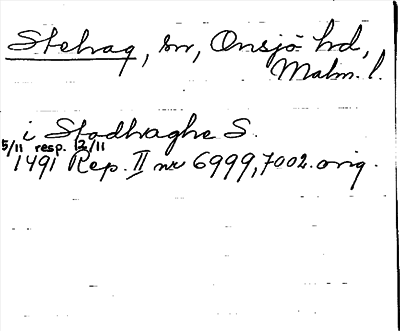 Stehag, sn, Onsjö hd,
Malm. l.
i Stadhraghe S.
5/11 resp. 12/11
1491 Rep. II nr 6999, 7002. orig.